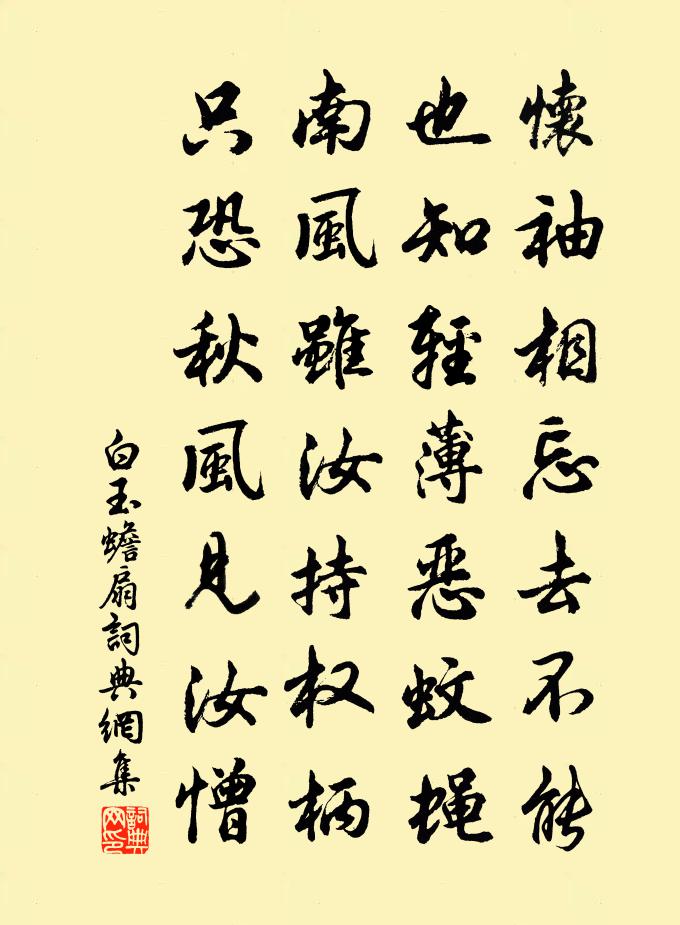 懷袖相忘去不能
也知輕薄惡蚊蝇
南風雖汝持权柄
只恐秋風見汝憎
白玉蟾扇詞典網集
詞典网印